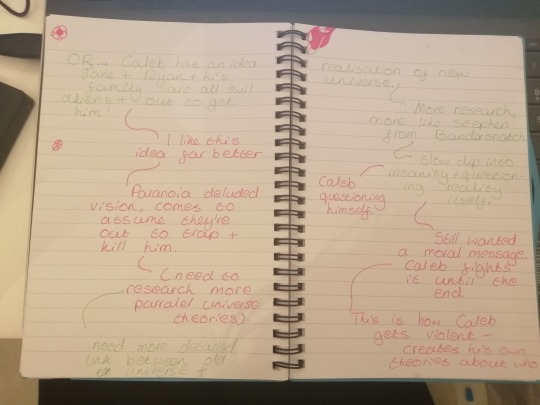 OR... Caleb has an idea
Jane + Ryan + his
family are all evil
aliens + out to get
him!
I like this
idea far better
Paranoia deluded
vision, comes to
assume they're
out to trap +
kill him.
(need to
research more
parralel universe
theories)
need more detailed
link between old
universe +
realisation of new
universe.
More research,
more like Stephen
from Bandersnatch
Slow dip into
insanity + question-
ing reality
itself.
Caleb
questioning
himself.
Still wanted
a moral message.
Caleb fights
it until the
end.
This is how Caleb
gets violent -
creates his own
theories about who